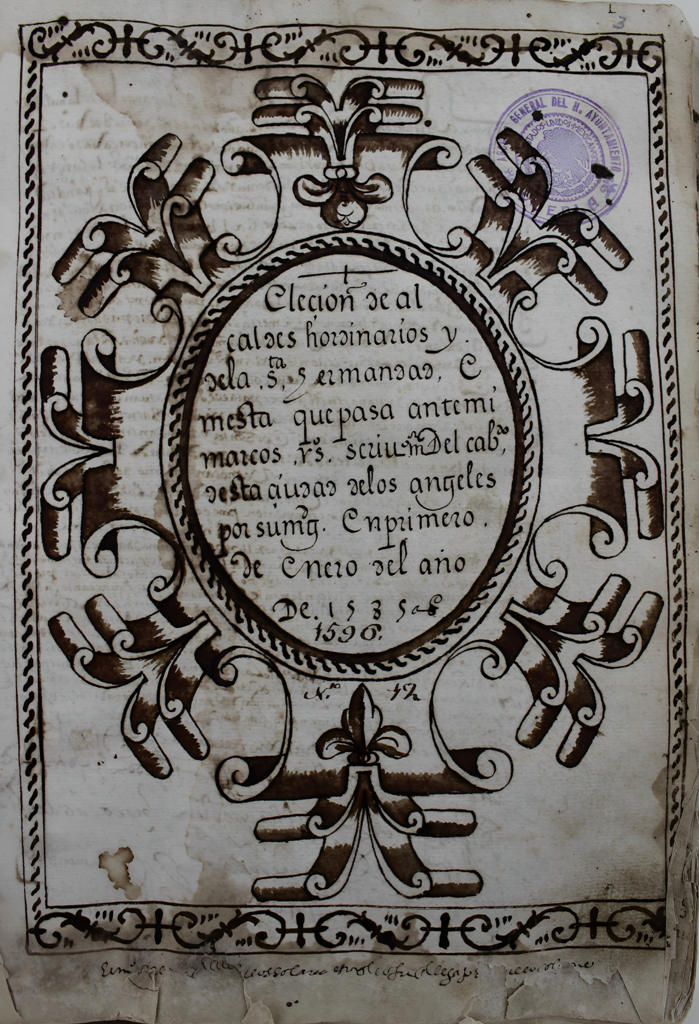 3
GENERAL DEL H. AYUNTAMIENTO
ESTADOS UNIDOS MEXICANOS
Elecion de al
caldes hordinarios y.
dela .sta. hermandad, E
mesta que pasa antemi
marcos .rs. scriu del cabo,
desta ciudad delos angeles
por sumg. En primero.
de Enero del año
De. 1585
1596.
No. 12